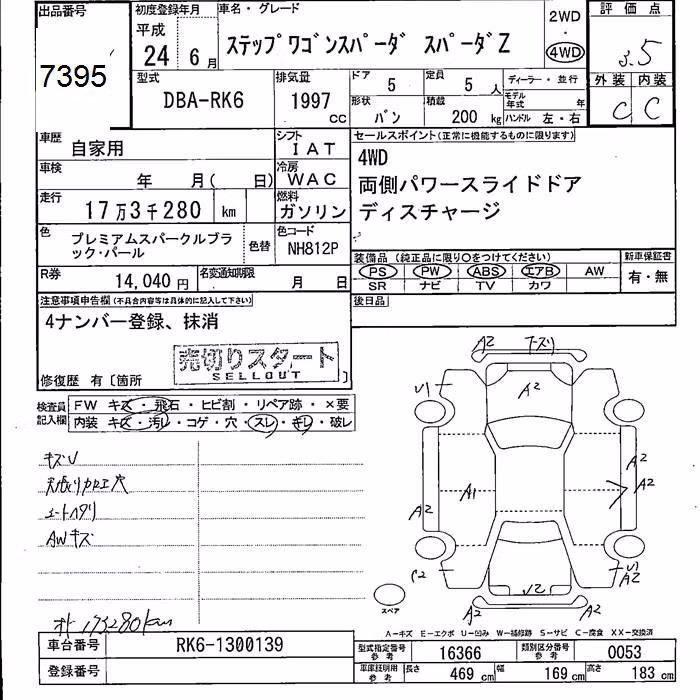 出品番号
7395
初度登録年月
平成
24 6月
車名・グレード
ステップワゴンスパーダ スパーダZ
2WD
・
4WD
評価点
3.5
型式
DBA-RK6
排気量
1997 cc
ドア
5
定員
5 人
ディーラー・並行
形状
バン
積載
200 kg
モデル年式 年
ハンドル 左・右
外装 内装
C C
車歴
自家用
シフト
IAT
セールスポイント(正常に機能するものに限ります)
4WD
両側パワースライドドア
ディスチャージ
車検
年 月( 日)
冷房
WAC
走行
17万3千280 km
燃料
ガソリン
色
プレミアムスパークルブラック・パール
色替
色コード
NH812P
装備品(純正品に限り○をつけてください)
新車保証書
PS PW ABS エアB AW
SR ナビ TV カワ
有・無
R券
14,040円
名変通知期限
月 日
後日品
注意事項申告欄(不具合内容等は具体的に記入して下さい)
4ナンバー登録、抹消
売切りスタート
SELLOUT
修復歴 有〔箇所 〕
検査員記入欄
FW キズ・飛石・ヒビ割・リペア跡・×要
内装 キズ・汚レ・コゲ・穴・スレ・キレ・破レ
キズU
天張り加工穴
シートヘタリ
AWキズ
メーター173280km
A2
A2
U1
A2
A1
A2
A2
A2
C2
U2
U1
A2
A2
A2
スペア
A-キズ E-エクボ U-凹み W-補修跡 S-サビ C-腐食 XX-交換済
車台番号
RK6-1300139
登録番号
型式指定番号
参考
16366
類別区分番号
参考
0053
車庫証明用
参考
長さ
469 cm
幅
169 cm
高さ
183 cm